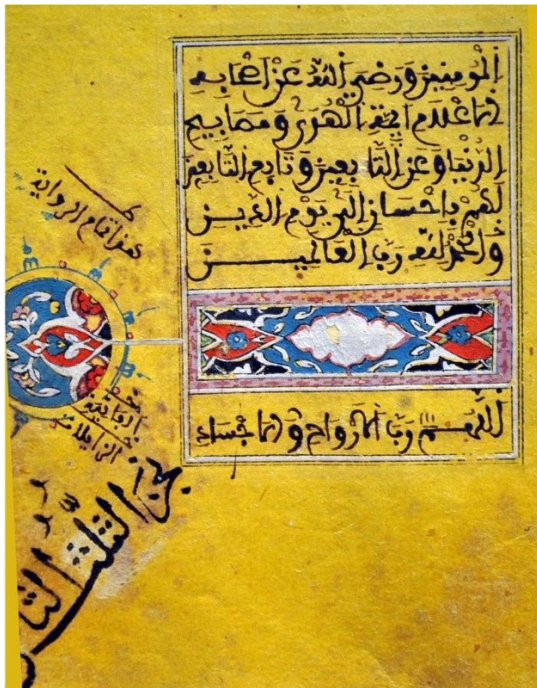 المومنين ورضي الله عن أصحابه
الأعلام أيمة الهدى ومصابيح
الدنيا وعن التابعين وتابع التابعين
لهم بإحسان إلى يوم الدين
والحمد لله رب العالمين
اللهم رب الأرواح والأجساد
الرواية
الثلث